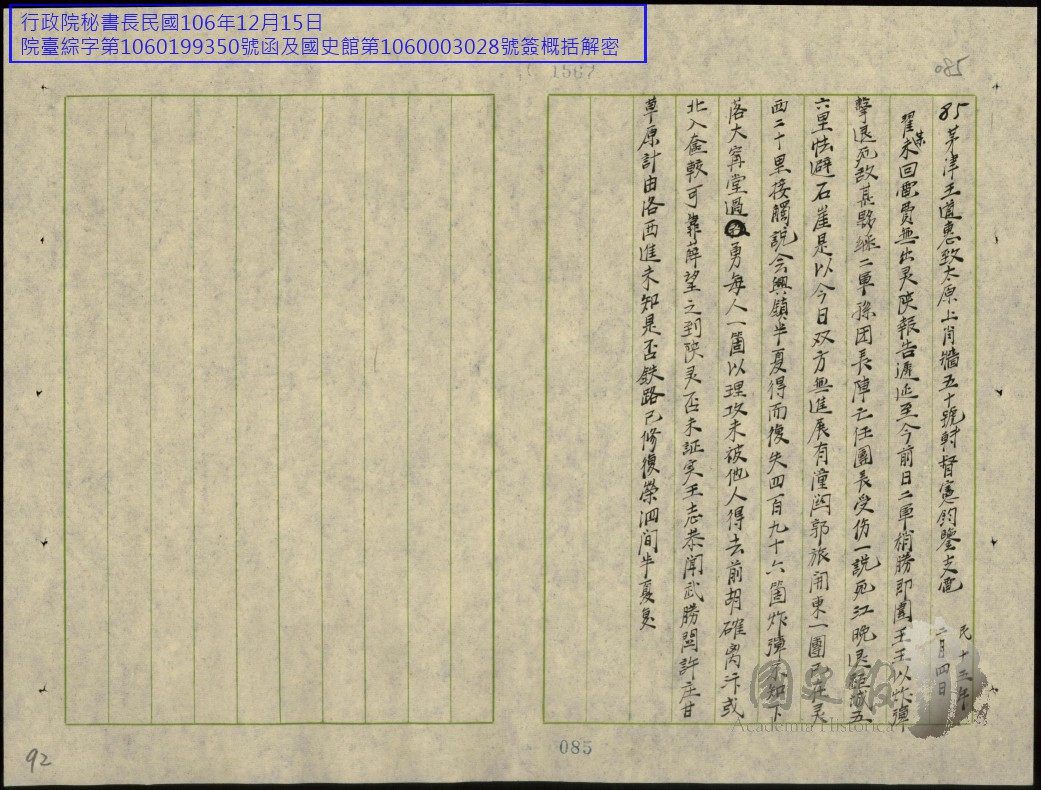 行政院秘書長民國106年12月15日
院臺綜字第1060199350號函及國史館第1060003028號簽概括解密
1567
580
85 茅津王道惠致太原上肖牆五十號轉督憲鈞鑒支電
民十五年
二月四日
翟某未回電費無出灵陝報告遲延至今前日二軍稍勝即圍王王以炸彈
擊退死敵甚夥緣二軍孫团長陣亡汪團長受伤一說死江晚退距城五
六里怯避石崖是以今日双方無進展有潼関郭旅開東一團已在灵
西二十里接觸說会興鎮半夏得而復失四百九十六箇炸彈不知下
落大甯堂過勇每人一箇以理攻未被他人得去前胡確离汴或
北入奋較可靠薛望之到陝灵否未証实王志恭聞武勝関許庄甘
草原計由洛西進未知是否鉄路已修復榮泗间半夏复
國史館
Academia Historica
085
92